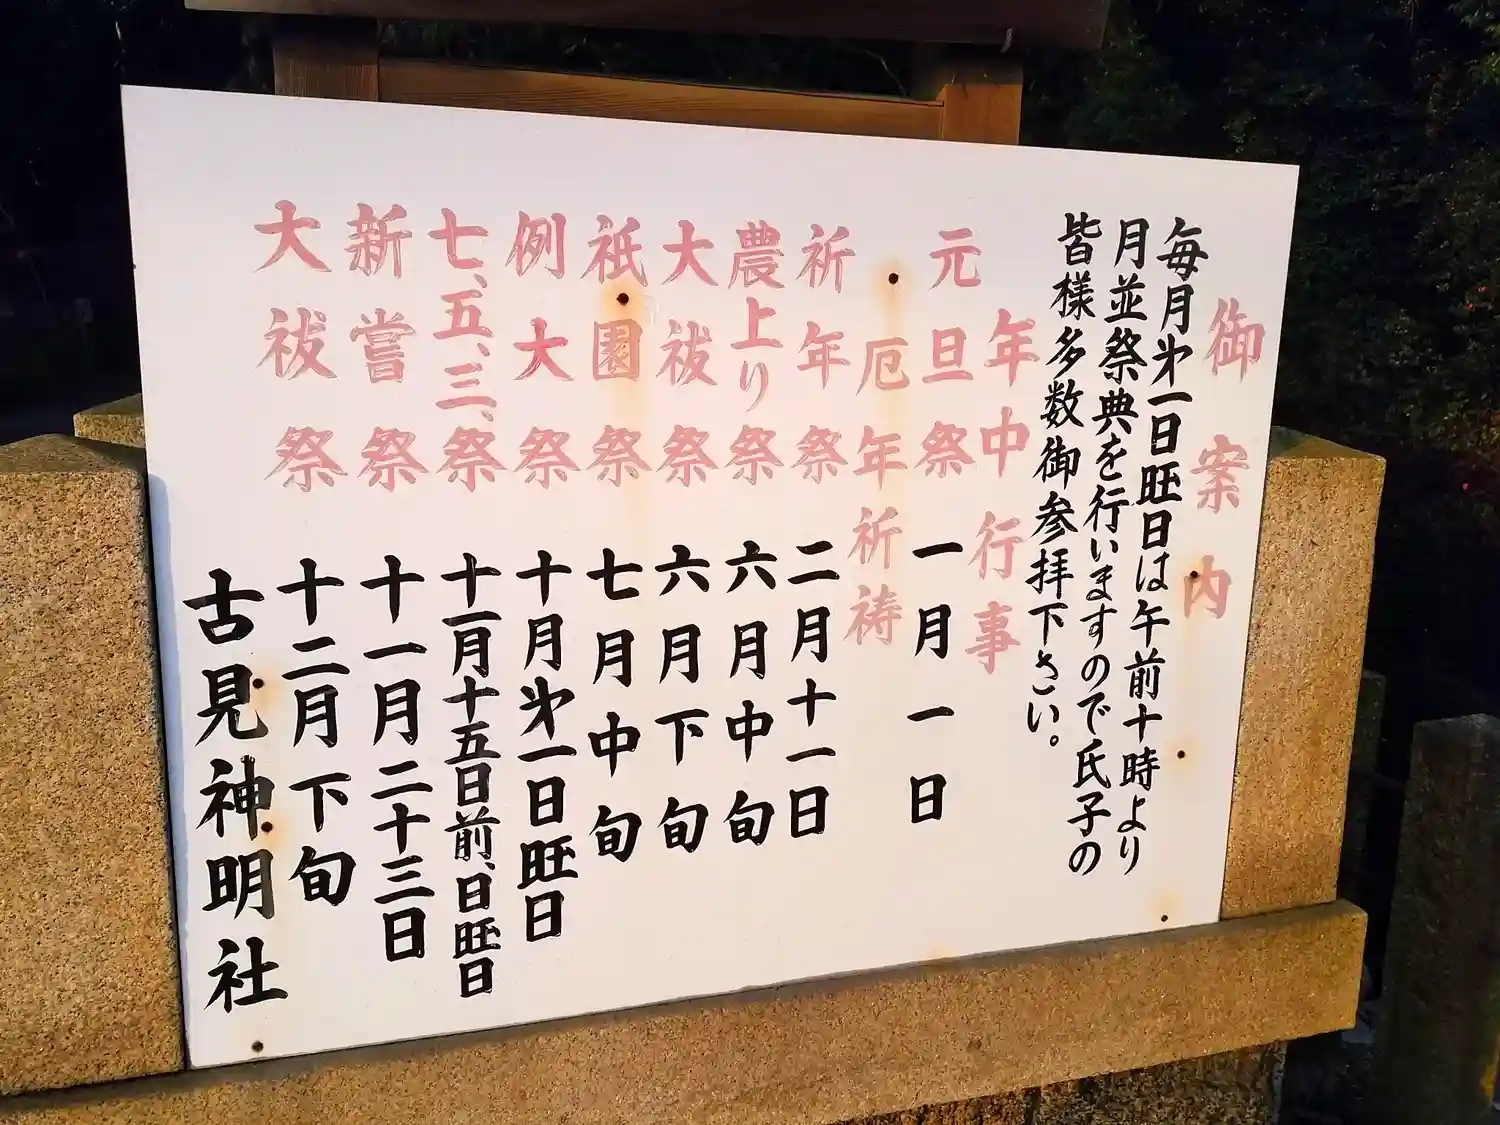 御案内
毎月㐧一日旺日は午前十時より
月並祭典を行いますので氏子の
皆様多数御参拝下さい。
年中行事
元旦祭 一月一日
厄年祈祷
祈年祭 二月十一日
農上り祭 六月中旬
大祓祭 六月下旬
祇園祭 七月中旬
例大祭 十月㐧一日旺日
七、五、三、祭 十一月十五日前、日旺日
新嘗祭 十一月二十三日
大祓祭 十二月下旬
古見神明社